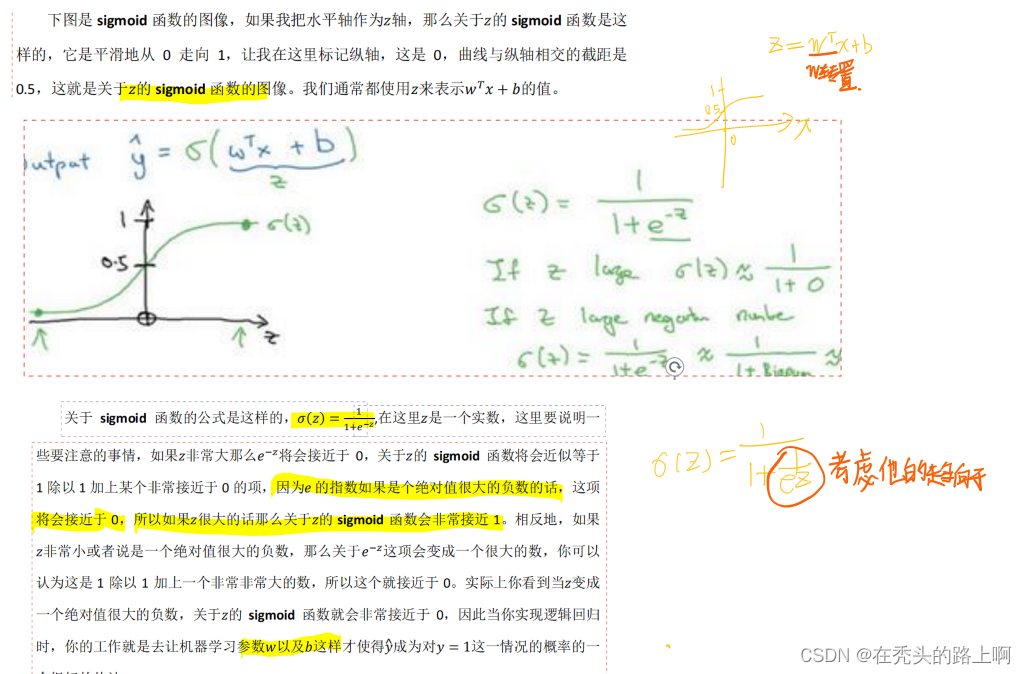 下图是 sigmoid 函数的图像，如果我把水平轴作为z轴，那么关于z的 sigmoid 函数是这
样的，它是平滑地从 0 走向 1，让我在这里标记纵轴，这是 0，曲线与纵轴相交的截距是
0.5，这就是关于z的 sigmoid 函数的图像。我们通常都使用z来表示wᵀx + b的值。
z = wᵀx+b
w转置
1
0.5
0
x
utput ŷ = σ(wᵀx + b)
z
1
σ(z)
0.5
z
σ(z) = 1/(1+e^-z)
If z large σ(z) ≈ 1/(1+0)
If z large negative number
σ(z) = 1/(1+e^-z) ≈ 1/(1+ ≈
关于 sigmoid 函数的公式是这样的，σ(z) = 1/(1+e^-z),在这里z是一个实数，这里要说明一
些要注意的事情，如果z非常大那么e^-z将会接近于 0，关于z的 sigmoid 函数将会近似等于
1 除以 1 加上某个非常接近于 0 的项，因为e 的指数如果是个绝对值很大的负数的话，这项
将会接近于 0，所以如果z很大的话那么关于z的 sigmoid 函数会非常接近 1。相反地，如果
z非常小或者说是一个绝对值很大的负数，那么关于e^-z这项会变成一个很大的数，你可以
认为这是 1 除以 1 加上一个非常非常大的数，所以这个就接近于 0。实际上你看到当z变成
一个绝对值很大的负数，关于z的 sigmoid 函数就会非常接近于 0，因此当你实现逻辑回归
时，你的工作就是去让机器学习参数w以及b这样才使得ŷ成为对y = 1这一情况的概率的一
σ(z) = 1/(1+1/e^z) 考虑他的走向
CSDN @在秃头的路上啊